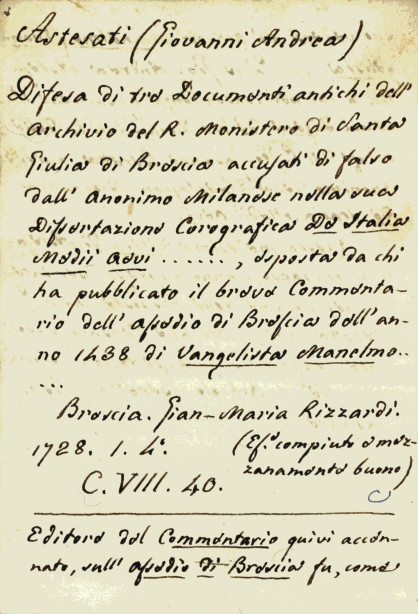 Astesati (Giovanni Andrea)
Difesa di tre Documenti antichi dell'
Archivio del R. Monistero di Santa
Giulia di Brescia accusati di falso
dall' anonimo Milanese nella sua
Dissertazione Corografica De Italia
Medii Aevi ......., esposta da chi
ha pubblicato il breve Commenta-
rio dell' assedio di Brescia dell' an-
no 1438 di Vangelista Manelmo..
...
Brescia. Gian-Maria Rizzardi.
1728. 1. 4.° (Es.e compiuto e mez-
zanamente buono)
C. VIII. 40.
Editore del Commentario quivi accen-
nato, sull' assedio di Brescia fu, come